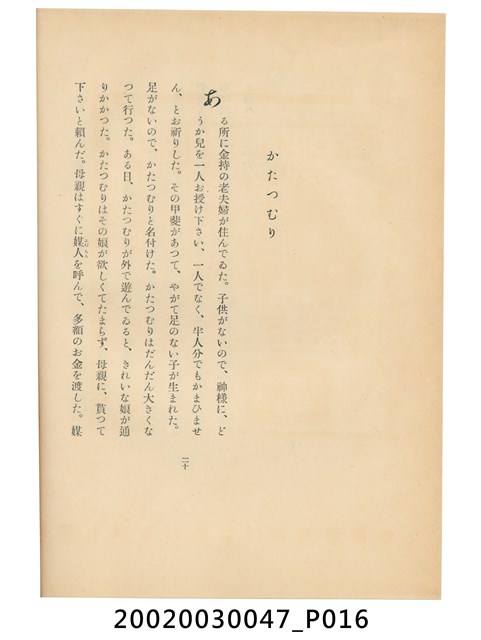 かたつむり
ある所に金持の老夫婦が住んでゐた。子供がないので、神様に、ど
うか兒を一人お授け下さい、一人でなく、半人分でもかまひませ
ん、とお祈りした。その甲斐があつて、やがて足のない子が生まれた。
足がないので、かたつむりと名付けた。かたつむりはだんだん大きくな
つて行つた。ある日、かたつむりが外で遊んでゐると、きれいな娘が通
りかかつた。かたつむりはその娘が欲しくてたまらず、母親に、貰つて
下さいと頼んだ。母親はすぐに媒人を呼んで、多額のお金を渡した。媒
二十
20020030047_P016